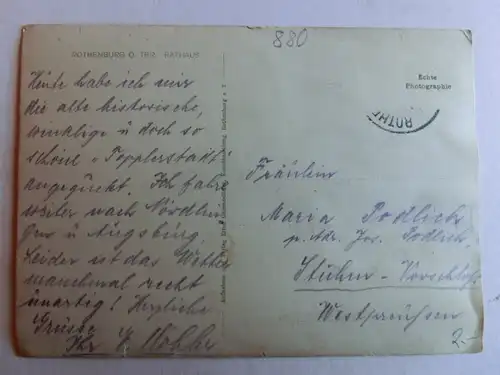 880
ROTHENBURG O. TBR. RATHAUS
Echte
Photographie
ROTHE
Heute habe ich mir
die alte historische,
winklige u doch so
schöne "Topplerstadt"
angeguckt. Ich fahre
weiter nach Nördlin
gen u Augsburg.
Leider ist das Wetter
manchmal recht
unartig! Herzliche
Grüsse
Ihr
Fräulein
Maria Podlich
p. Adr. Jos. Podlich
Stuhm - Vorschloß
Westpreußen
2.-